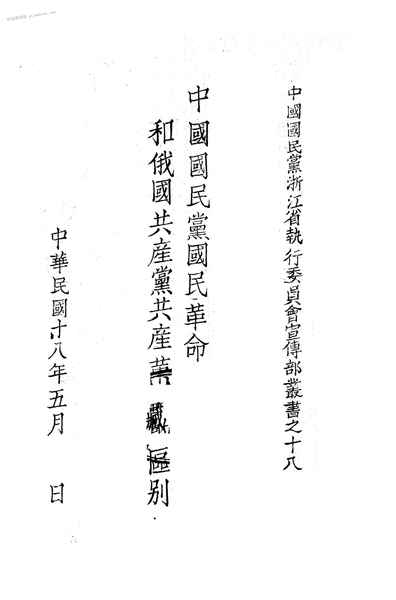 中國國民黨浙江省執行委員會宣傳部叢書之十八
中國國民黨國民革命
和俄國共產黨共產
區別
中華民國十八年五月　日